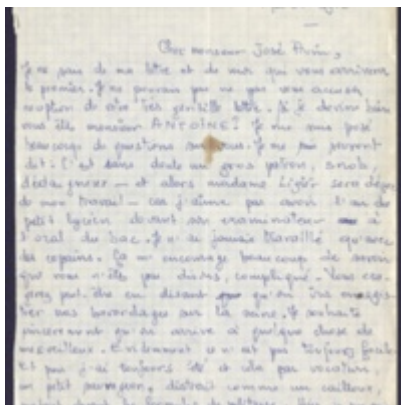 Cher monsieur José
Je ne sais de ma lettre et de moi qui vous arrivera
le premier. Je ne pouvais pas ne pas vous accuser
réception de votre très gentille lettre. Si je devine bien
vous êtes monsieur ANTOINE? Je me suis posé
beaucoup de questions sur vous. Je me suis souvent
dit. C'est sans doute un gros patron, snob,
dédaigneux — et alors madame Légér sera déçue
de mon travail — car j'aime pas avoir l'air du
petit lycéen devant son examinateur à
l'oral du bac. Je n'ai jamais travaillé qu'avec
des copains. Ça m'encourage beaucoup de savoir
que vous n'êtes pas distant, compliqué. Vous
peut-être en disant qu'on ira
sur la seine. Je souhaite
sincèrement qu'on arrive à quelque chose de
merveilleux. Évidemment ce n'est pas toujours facile
et puis j'ai toujours été et cela par vocation,
un petit distrait comme un caillou,